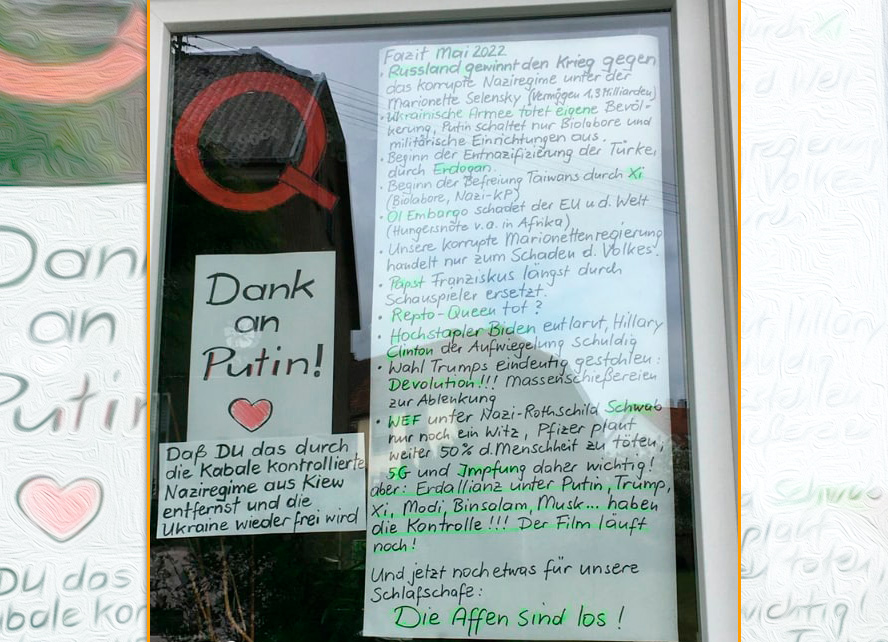 Q
Dank
an
Putin!
Daß DU das durch
die Kabale kontrollierte
Naziregime aus Kiew
entfernst und die
Ukraine wieder frei wird
Fazit Mai 2022
• Russland gewinnt den Krieg gegen
das korrupte Naziregime unter der
Marionette Selensky (Vermögen 1,3 Milliarden)
• Ukrainische Armee tötet eigene Bevöl-
kerung, Putin schaltet nur Biolabore und
militärische Einrichtungen aus.
• Beginn der Entnazifizierung der Türkei
durch Erdogan.
• Beginn der Befreiung Taiwans durch Xi
(Biolabore, Nazi-KP)
• Öl Embargo schadet der EU u.d. Welt
(Hungersnöte v.a. in Afrika)
• Unsere korrupte Marionettenregierung
handelt nur zum Schaden d. Volkes.
• Papst Franziskus längst durch
Schauspieler ersetzt.
• Repto-Queen tot?
• Hochstapler Biden entlarvt, Hillary
Clinton der Aufwiegelung schuldig
• Wahl Trumps eindeutig gestohlen:
Devolution!!! Massenschießereien
zur Ablenkung
• WEF unter Nazi-Rothschild Schwab
nur noch ein Witz, Pfizer plant
weiter 50% d. Menschheit zu töten,
5G und Impfung daher wichtig!
aber: Erdallianz unter Putin, Trump,
Xi, Modi, Binsolam, Musk... haben
die Kontrolle!!! Der Film läuft
noch!
Und jetzt noch etwas für unsere
Schlafschafe:
Die Affen sind los!